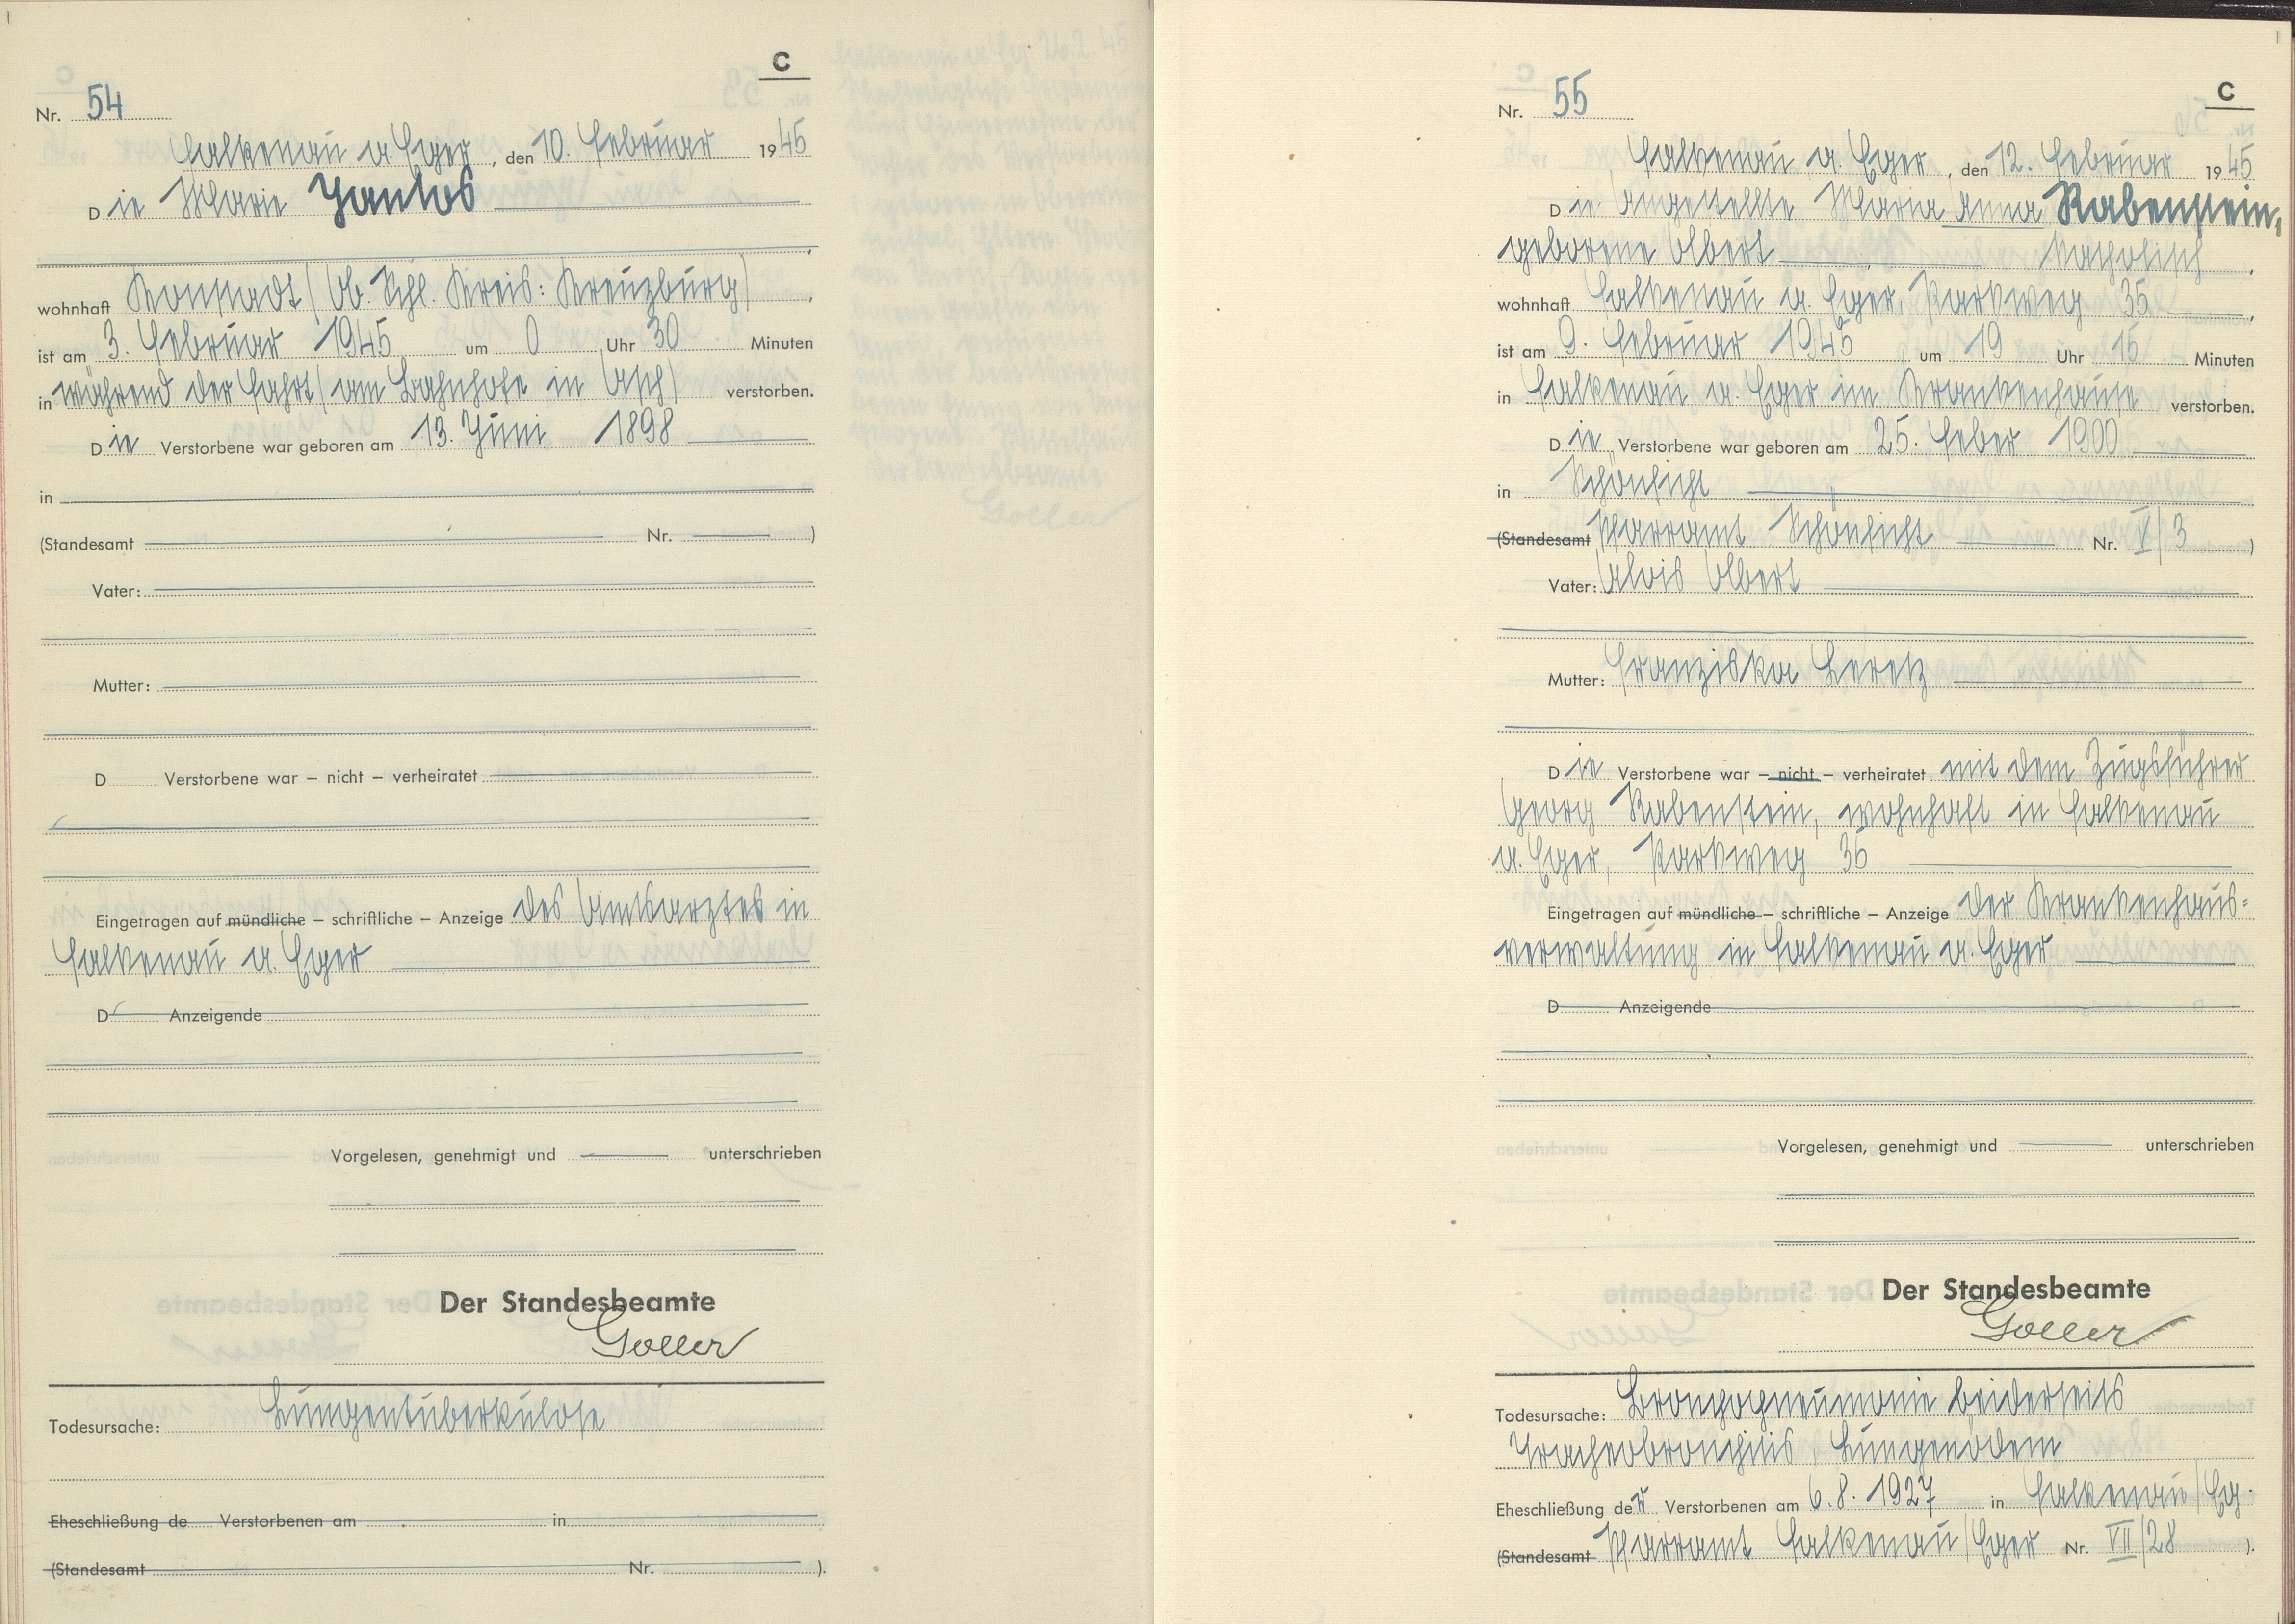 C
Nr. 54
Falkenau a. Eger, den 10. Februar 1945
Die Marie Jantos
wohnhaft Konstadt (Ob. Schl. Kreis: Kreuzburg),
ist am 3. Februar 1945 um 0 Uhr 30 Minuten
in während der Fahrt (am Bahnhofe in Asch) verstorben.
Die Verstorbene war geboren am 13. Juni 1898
in
(Standesamt Nr. )
Vater:
Mutter:
D Verstorbene war – nicht – verheiratet
Eingetragen auf mündliche – schriftliche – Anzeige des Amtsarztes in
Falkenau a. Eger
D Anzeigende
Vorgelesen, genehmigt und unterschrieben
Der Standesbeamte
Goller
Todesursache: Lungentuberkulose
Eheschließung de Verstorbenen am in
(Standesamt Nr. ).
C
Nr. 55
Falkenau a. Eger, den 12. Februar 1945
Die Angestellte Maria Anna Rabenstein,
geborene Olbert katholisch,
wohnhaft Falkenau a. Eger, Parkweg 35,
ist am 9. Februar 1945 um 19 Uhr 15 Minuten
in Falkenau a. Eger im Krankenhause verstorben.
Die Verstorbene war geboren am 25. Feber 1900
in Schönficht
(Standesamt Pfarramt Schönficht Nr. V/3 )
Vater: Alois Olbert
Mutter: Franziska
D ie Verstorbene war – nicht – verheiratet mit dem Zugsführer
Georg Rabenstein, wohnhaft in Falkenau
a. Eger, Parkweg 36
Eingetragen auf mündliche – schriftliche – Anzeige der Krankenhaus=
verwaltung in Falkenau a. Eger
D Anzeigende
Vorgelesen, genehmigt und unterschrieben
Der Standesbeamte
Goller
Todesursache: Bronchopneumonie beiderseits
Tracheobronchitis, Lungenödem
Eheschließung der Verstorbenen am 6. 8. 1927 in Falkenau/Eg.
(Standesamt Pfarramt Falkenau/Eger Nr. VII/28 ).